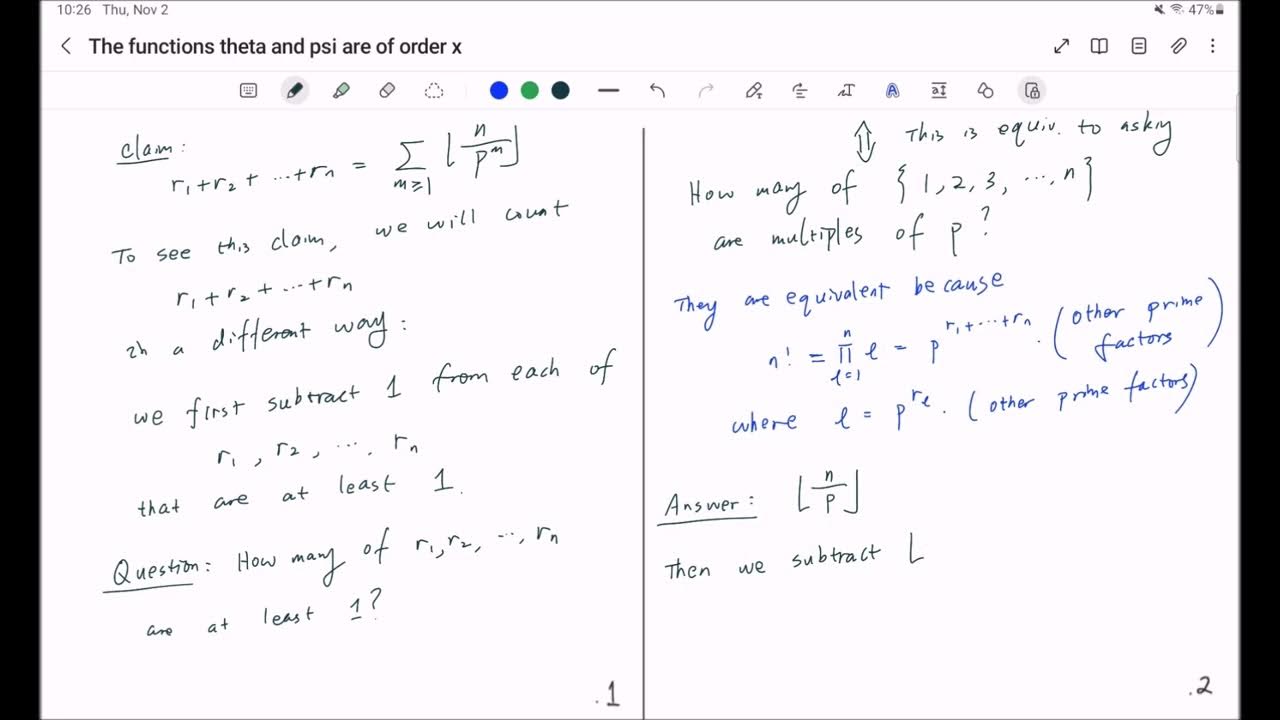 10:26 Thu, Nov 2
47%
The functions theta and psi are of order x
Claim:
r₁+r₂+⋯+rₙ = ∑_{m≥1} ⌊n/pᵐ⌋
To see this claim, we will count
r₁+r₂+⋯+rₙ
in a different way:
we first subtract 1 from each of
r₁, r₂, ⋯, rₙ
that are at least 1.
Question: How many of r₁, r₂, ⋯, rₙ
are at least 1?
.1
⇕ This is equiv. to asking
How many of {1, 2, 3, ⋯, n}
are multiples of p?
They are equivalent because
n! = ∏_{ℓ=1}^{n} ℓ = p^{r₁+⋯+rₙ} · (other prime
factors)
where ℓ = p^{r_ℓ} · (other prime factors)
Answer: ⌊n/p⌋
Then we subtract ⌊
.2